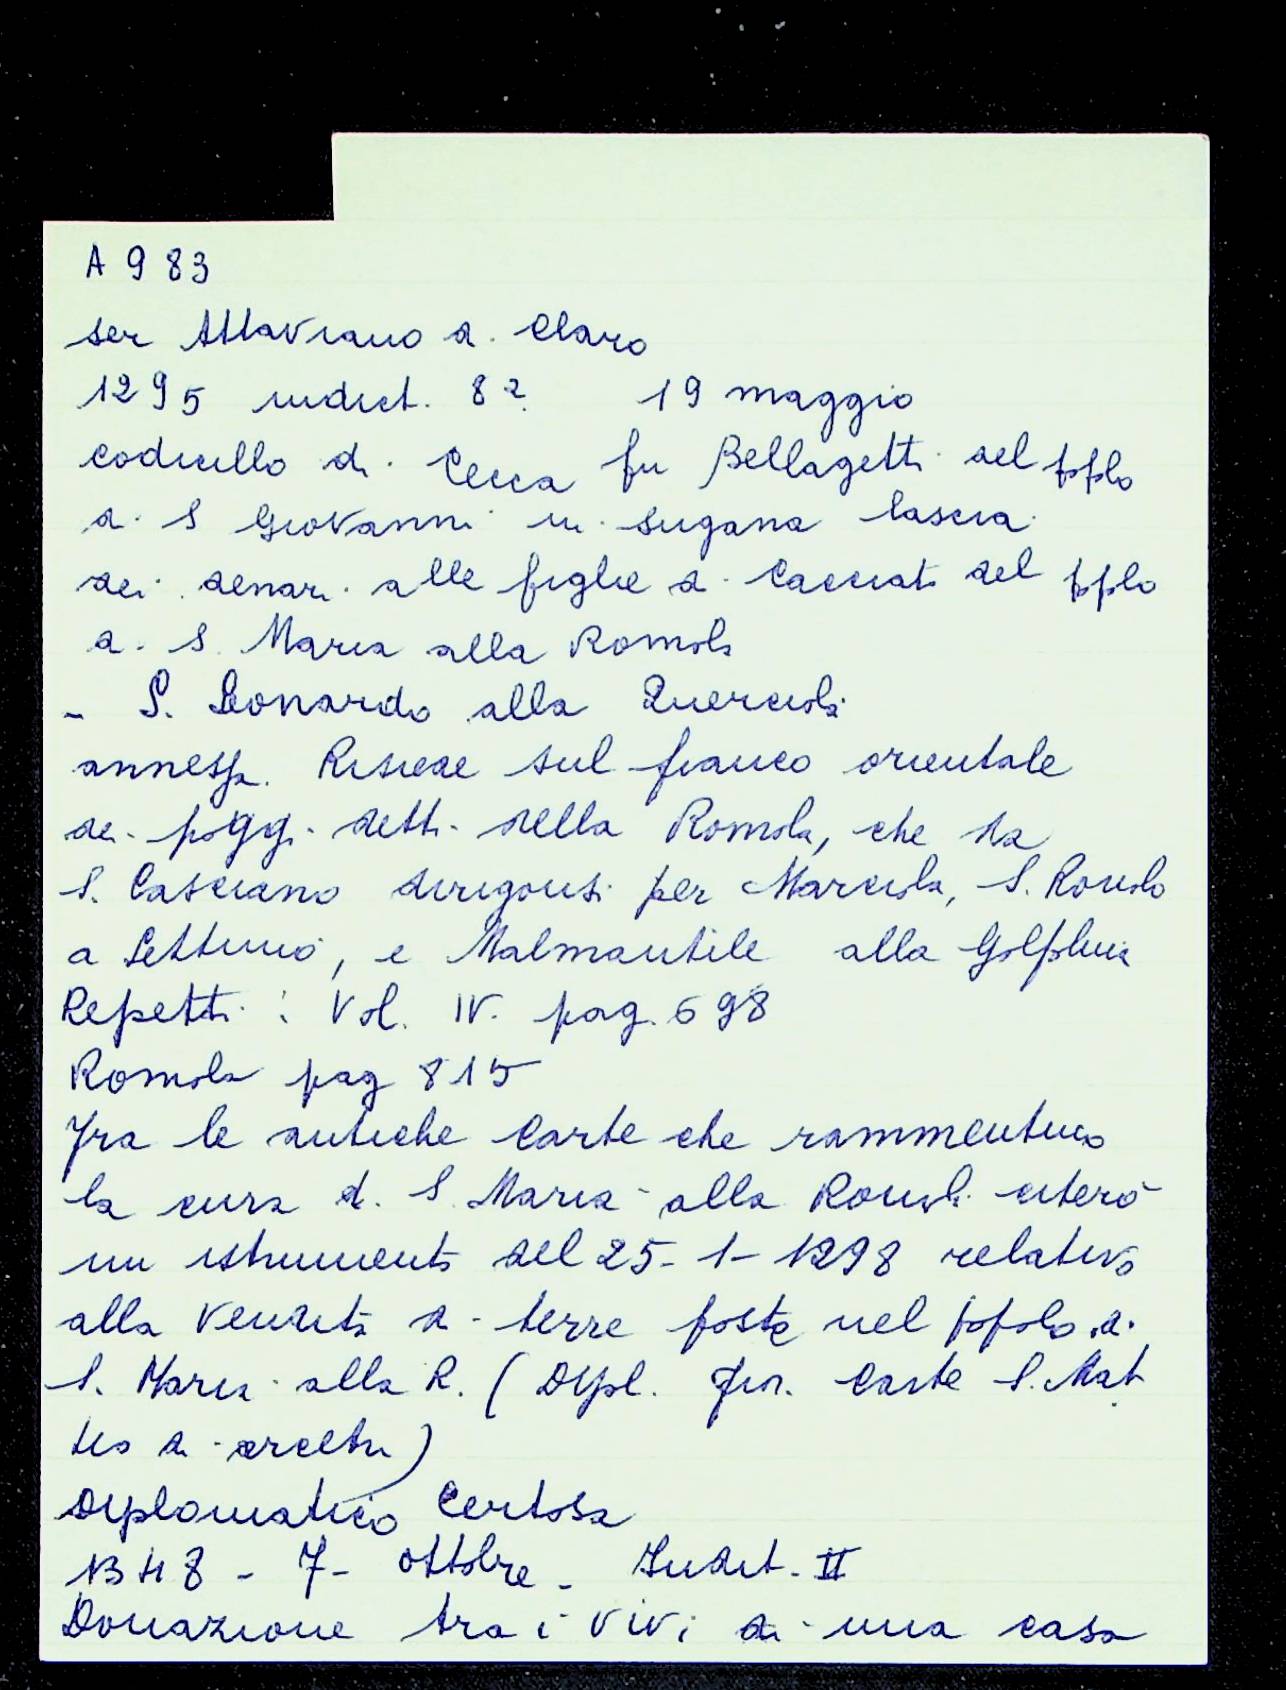 A 983
ser Attaviano di Claro
1295 indict. 8ª 19 maggio
codicillo di Cecca fu Bellagetti del popolo
di S Giovanni in Sugana lascia
dei denari alle figlie di Cacciati del popolo
di S. Maria alla Romola
- S. Leonardo alla Querciola
annessa. Risiede sul fianco orientale
dei poggi detti della Romola, che da
S. Casciano dirigonsi per Marciola, S. Romolo
a Settimo, e Malmantile alla Golfolina
Repetti: Vol. IV. pag. 698
Romola pag 815
Fra le antiche carte che rammentino
la cura di S. Maria alla Romola citerò
un istrumento del 25-1-1298 relativo
alla vendita di terre poste nel popolo di
S. Maria alla R. (Dipl. Fior. Carte S. Mat
teo di Arcetri)
Diplomatico Certosa
1348 - 7 - ottobre - Indit. II
Donazione tra i vivi di una casa